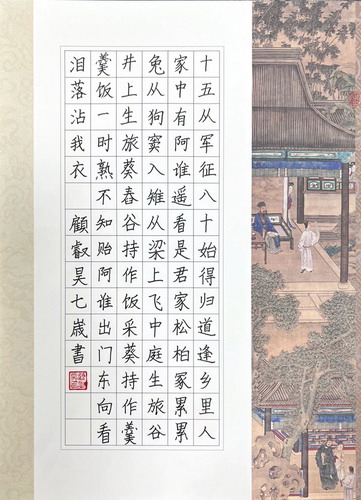 十五从军征八十始得归道逢乡里人
家中有阿谁遥看是君家松柏冢累累
兔从狗窦入雉从梁上飞中庭生旅谷
井上生旅葵舂谷持作饭采葵持作羹
羹饭一时熟不知贻阿谁出门东向看
泪落沾我衣 顧叡昊七歲書